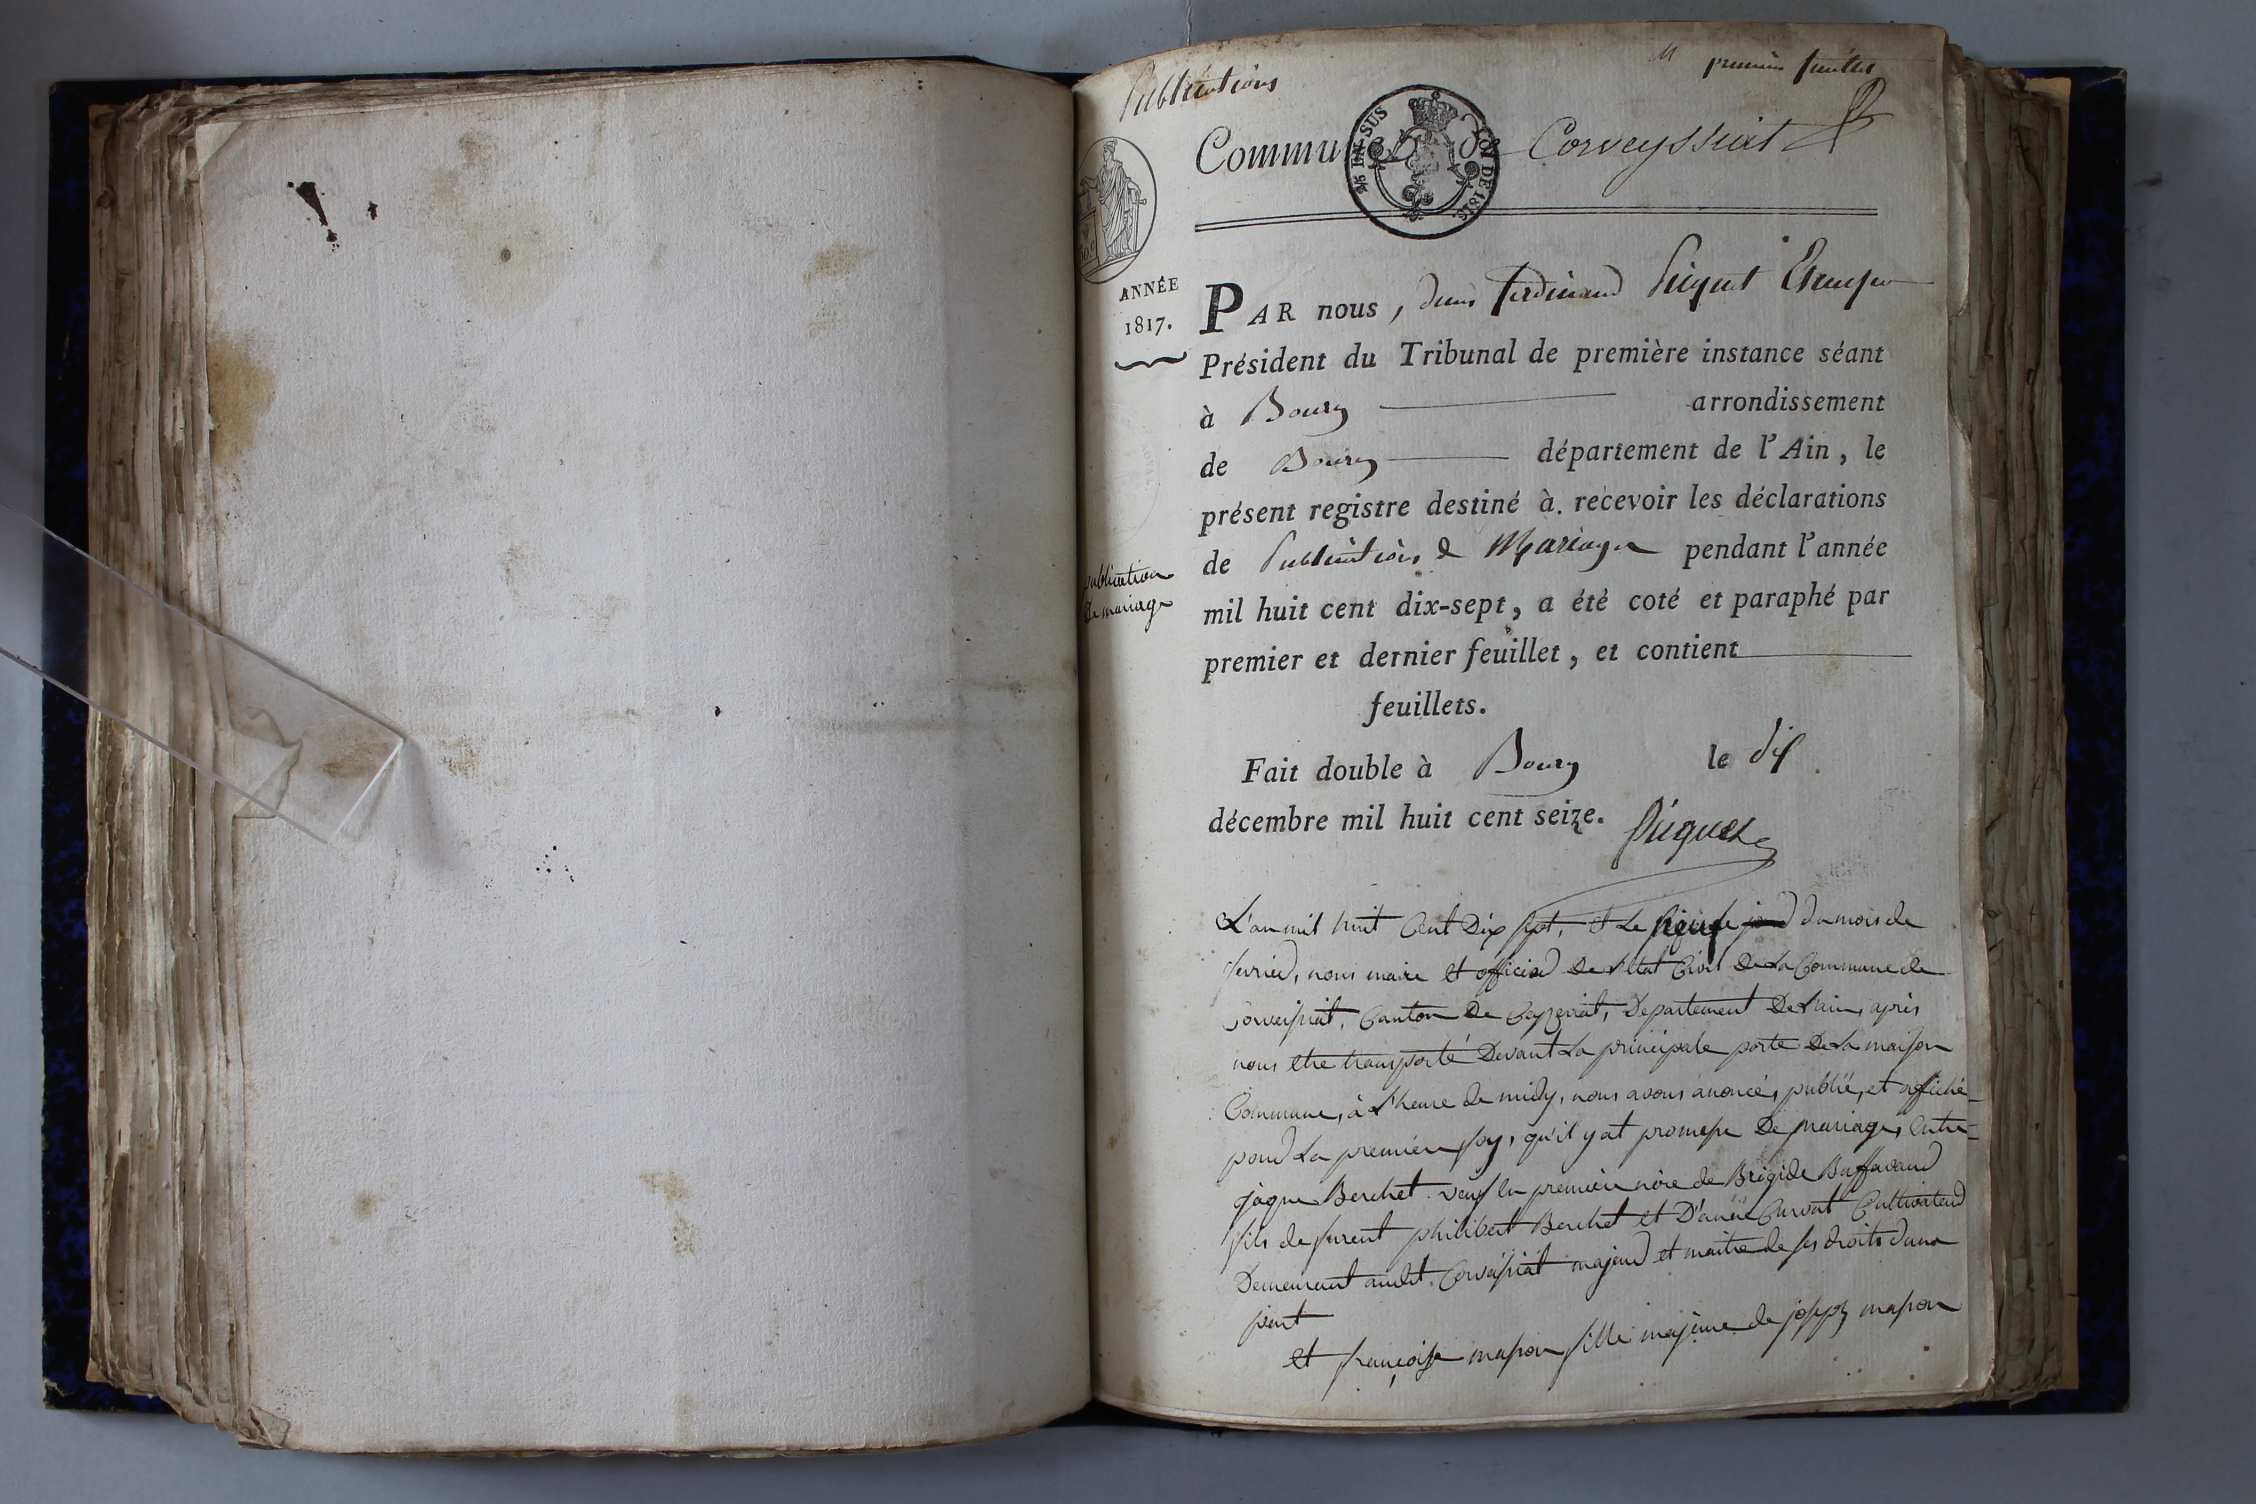 Publications
premier feuillet
Commune de Corveyssiat
25 EN SUS
LOI DE 1816.
ANNÉE
1817.
PAR nous, Ferdinand Piquet
Président du Tribunal de première instance séant
à Bourg arrondissement
de Bourg département de l'Ain, le
présent registre destiné à recevoir les déclarations
de Publications de Mariage pendant l'année
mil huit cent dix-sept, a été coté et paraphé par
premier et dernier feuillet, et contient
feuillets.
Fait double à Bourg le dix
décembre mil huit cent seize.
Piquet
publication
de mariage
L'an mil huit Cent Dix sept, & Le neuf du mois de
fevrier, nous maire et officier De l'état Civil De La Commune de
Corveissiat, Canton De Ceyzeriat, Departement De L'ain, après
nous etre transporté Devant La principale porte De La maison
Commune, à L'heure de midy, nous avons anoncé, publié, et affiché
pour La premiere foy, qu'il y at promesse De mariage, Entre
jaque Berchet veuf en premiere nôce de Brigide Buffavand
fils de furent philibert Berchet et D'anne Curvat Cultivateur
Demeurant audit Corveissiat majeur et maitre de ses droits d'une
part
et françoise masson fille majeure de joseph masson